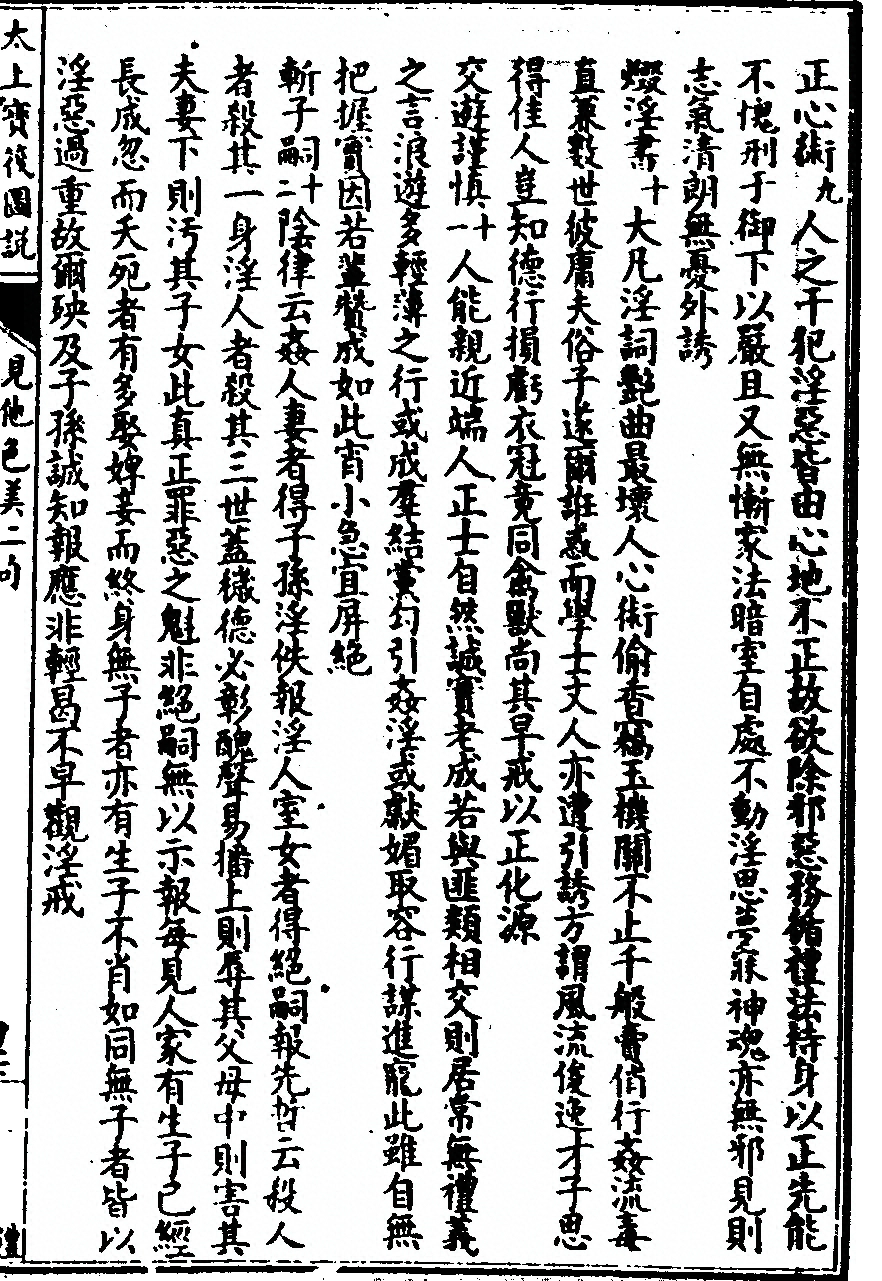 正心術九人之干犯淫惡皆由心地不正故欲除邪惡務循禮法持身以正先能
不愧刑于御下以嚴且又無慚家法暗室自處不動淫思夢寐神魂亦無邪見則
志氣清朗無憂外誘
燬淫書十大凡淫詞艷曲最壞人心術偷香竊玉機關不止千般賣俏行姦流毒
直兼數世彼庸夫俗子遂爾誑惑而學士文人亦遭引誘方謂風流俊逸才子思
得佳人豈知德行損虧衣冠竟同禽獸尚其早戒以正化源
交遊謹慎十一人能親近端人正士自然誠實老成若與匪類相交則居常無禮義
之言浪遊多輕薄之行或成羣結黨勾引姦淫或獻媚取容行謀進寵此雖自無
把握實因若輩贊成如此宵小急宜屏絕
斬子嗣十二陰律云姦人妻者得子孫淫佚報淫人室女者得絕嗣報先哲云殺人
者殺其一身淫人者殺其三世蓋穢德必彰醜聲易播上則辱其父母中則害其
夫妻下則污其子女此真正罪惡之魁非絕嗣無以示報每見人家有生子已經
長成忽而夭死者有多娶婢妾而終身無子者亦有生子不肖如同無子者皆以
淫惡過重故爾殃及子孫誠知報應非輕曷不早觀淫戒
太上寶筏圖説 見他色美二句 禮